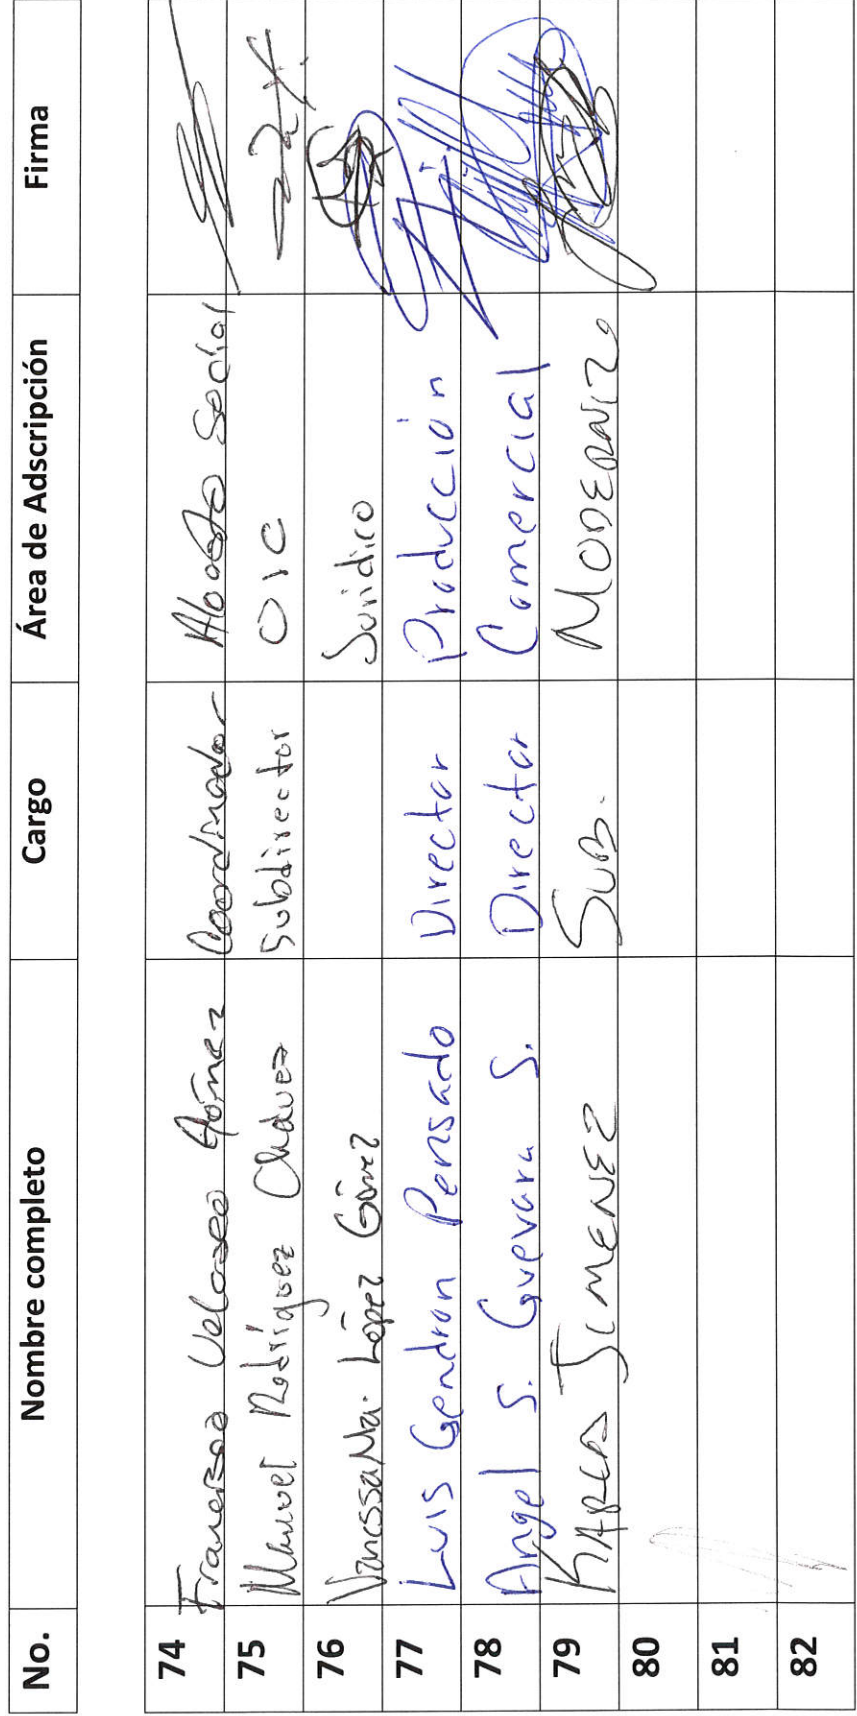 No. Nombre completo Cargo Área de Adscripción Firma
74 Francisco Velasco Gómez Coordinador Social
75 Manuel Rodríguez Chávez Subdirector OIC
76 Vanessa Ma. López Gómez Jurídico
77 Luis Gendron Pensado Director Producción
78 Angel S. Guevara S. Director Comercial
79 KARLA JIMENEZ SUB. MODERNIZ.
80
81
82